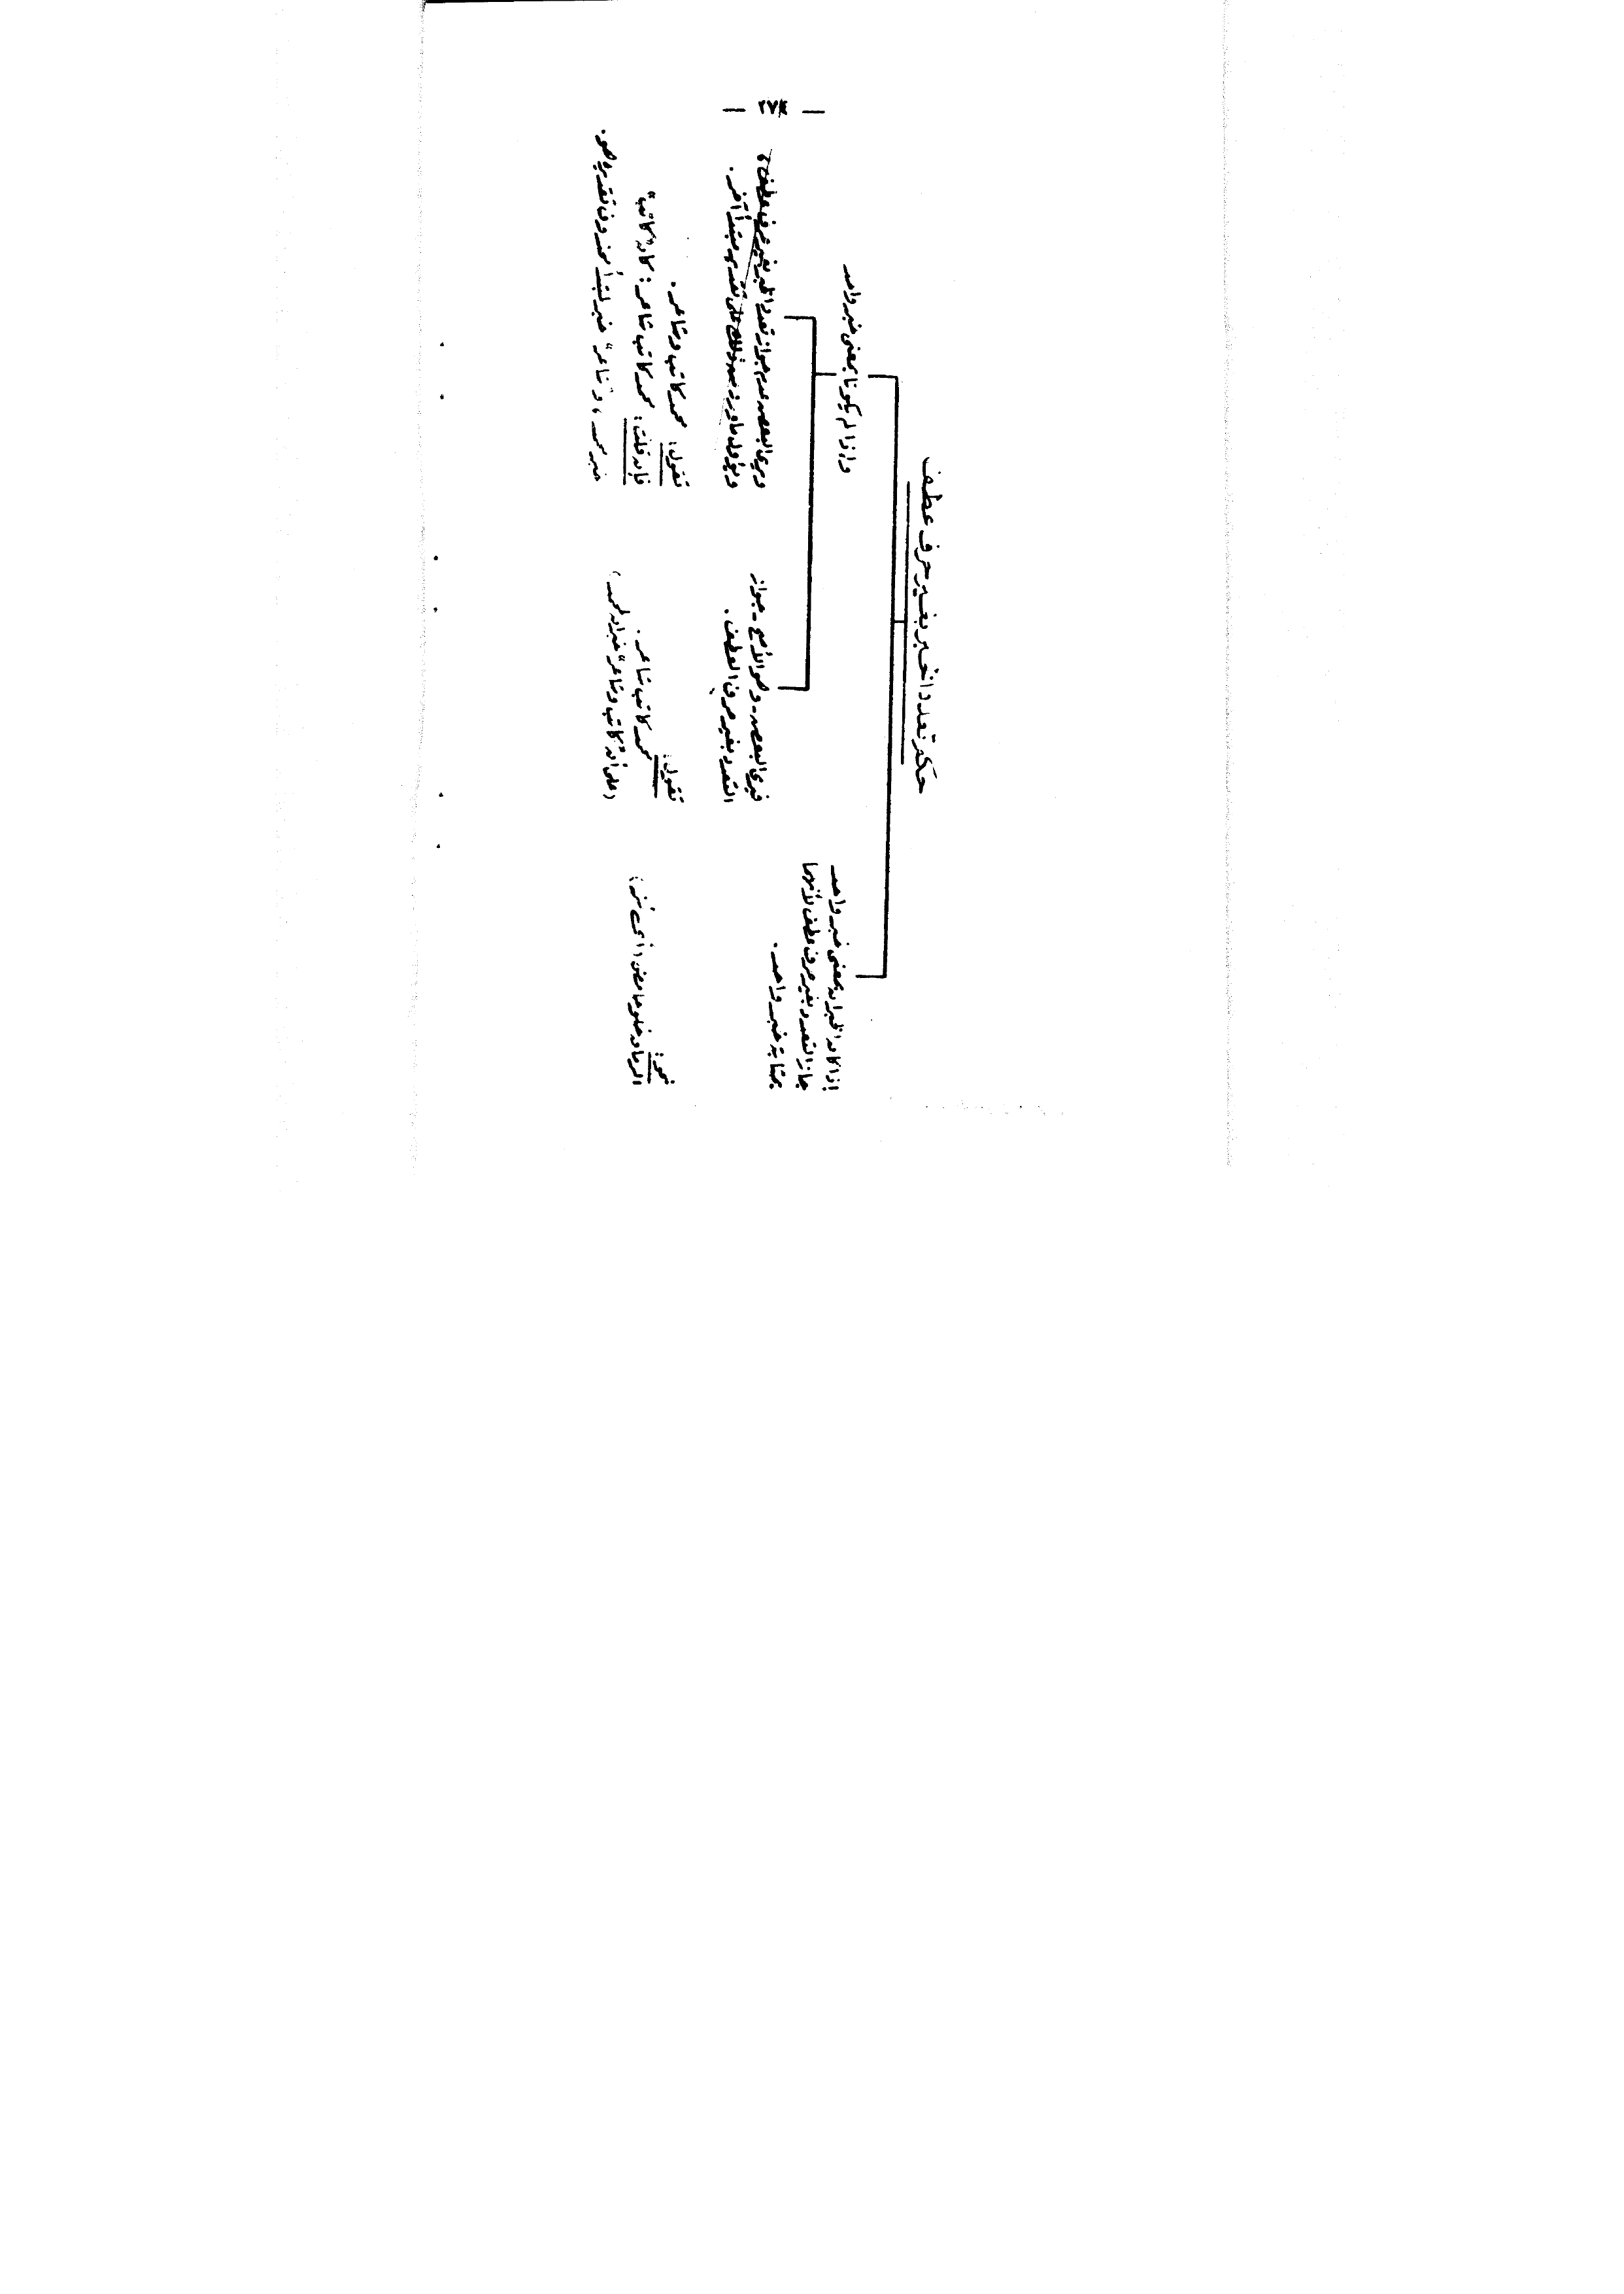 — ٢٧٤ —
حكم تعدد الخبر بغير حرف عطف
إذا كان الخبران بمعنى خبر واحد
جاز التعدد بغير حرف عطف لأنهما
بمثابة خبر واحد.
نحو:
الرمان حلو حامض (أي مُزّ)
وإذا لم يكونا بمعنى خبر واحد
فيرى البعض - وهو الأصح - جواز
التعدد بغير حرف العطف.
تقول:
محمد كاتب شاعر.
(على أن "كاتب وشاعر" خبران لمحمد)
ويرى البعض عدم جواز تعدد الخبر بغير حرف عطف،
ويؤول ما ورد بعد ذلك على تقدير مبتدأ آخر.
تقول: محمد كاتب وشاعر.
فإن قلت: محمد كاتب شاعر: كان "كاتب"
خبر محمد، و"شاعر" خبر لمبتدأ محذوف تقديره هو.